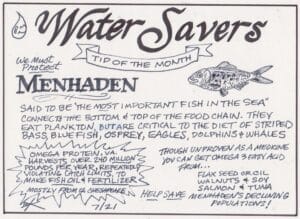 Water Savers
TIP OF THE MONTH
We Must
Protect
MENHADEN
SAID TO BE 'THE MOST IMPORTANT FISH IN THE SEA'
CONNECTS THE BOTTOM & TOP OF THE FOOD CHAIN. THEY
EAT PLANKTON, BUT ARE CRITICAL TO THE DIET OF STRIPED
BASS, BLUEFISH, OSPREY, EAGLES, DOLPHINS & WHALES
OMEGA PROTEIN, VA.
HARVESTS OVER 240 MILLION
POUNDS PER YEAR, REPEATEDLY
VIOLATING CATCH LIMITS, TO
MAKE FISH OIL & FERTILIZER
MOSTLY FROM CHESAPEAKE
7/21
THOUGH UNPROVEN AS A MEDICINE
YOU CAN GET OMEGA 3 FATTY ACID
FROM...
FLAX SEED OR OIL
WALNUTS & SOY
SALMON & TUNA
HELP SAVE MENHADEN'S DECLINING
POPULATIONS!